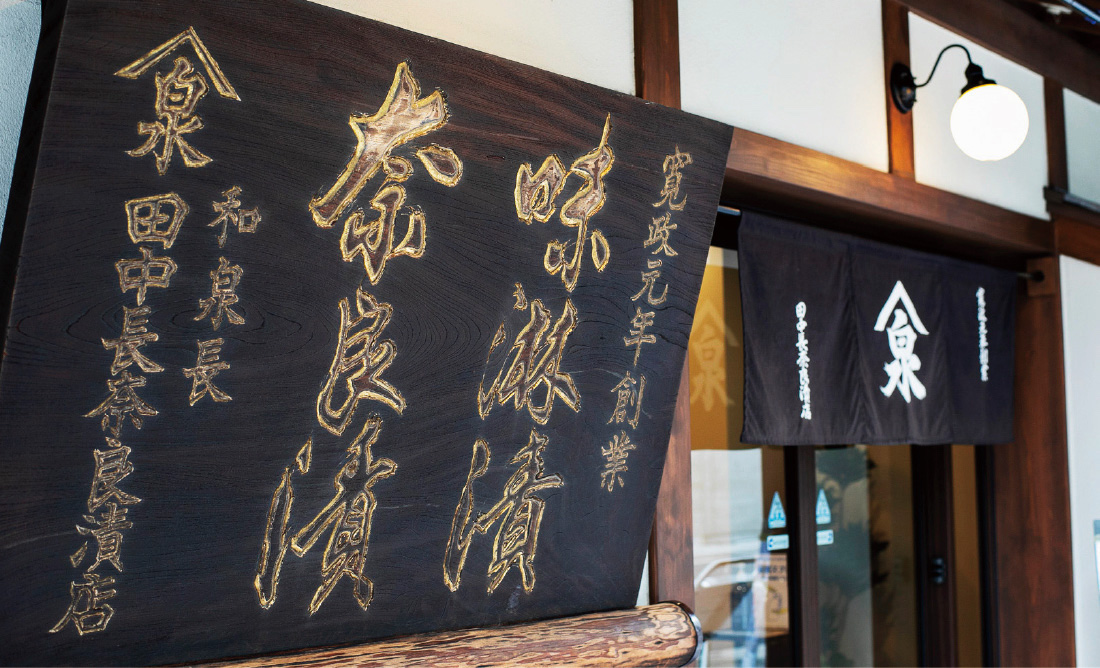 寛政元年創業
味淋漬
奈良漬
和泉長
泉 田中長奈良漬店
泉
田中長奈良漬店
泉